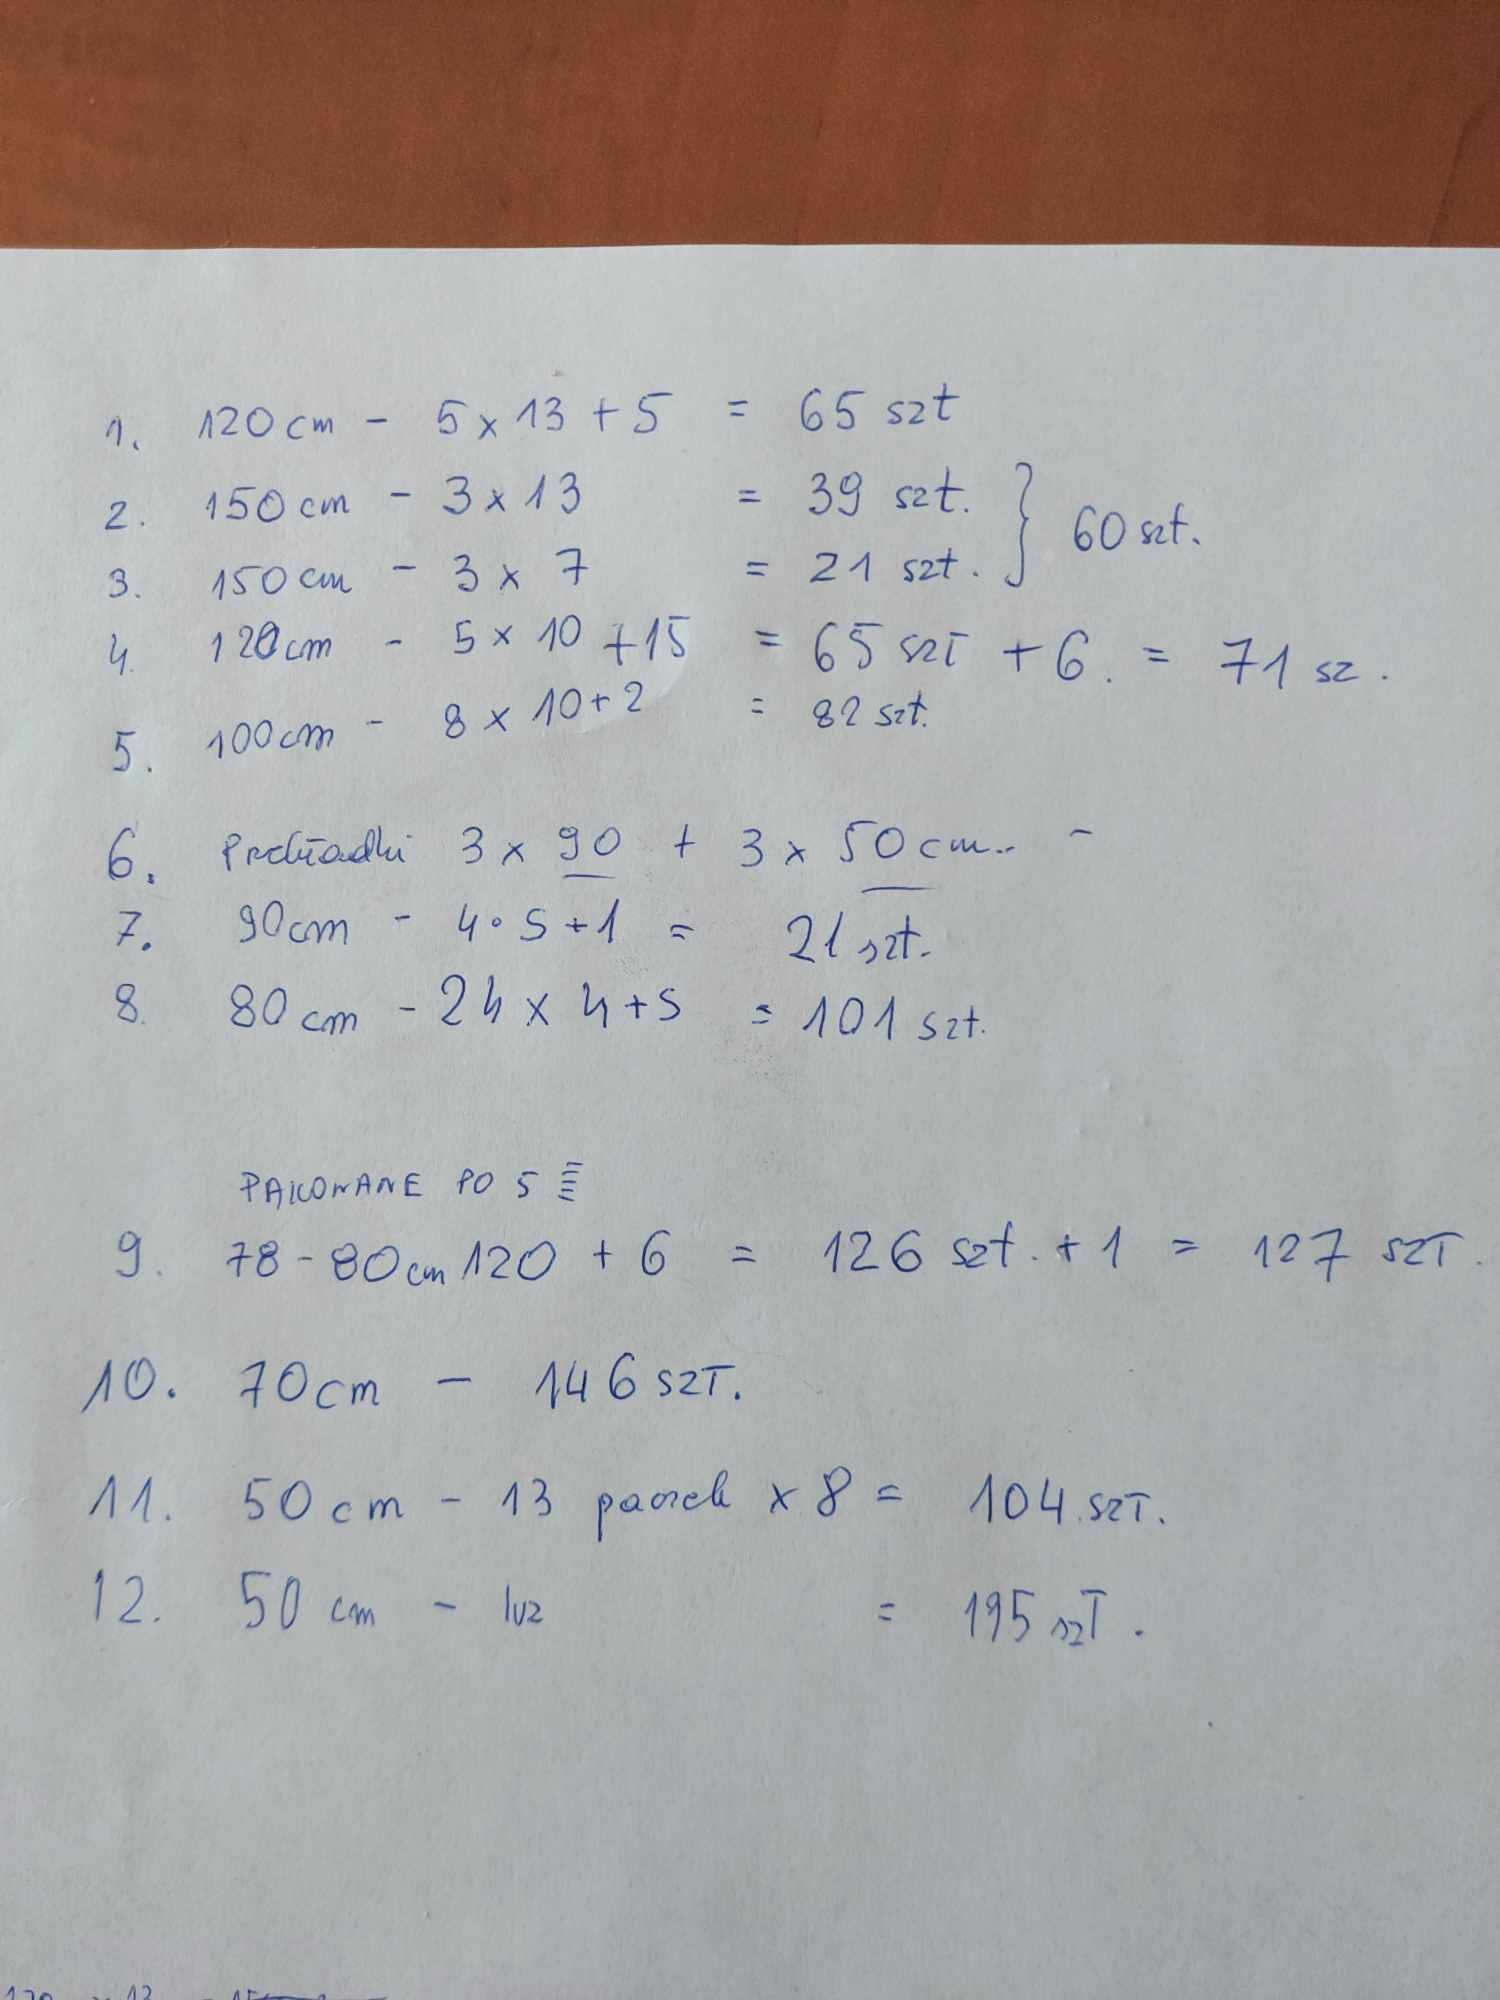 1. 120cm - 5 x 13 + 5 = 65 szt
2. 150cm - 3 x 13 = 39 szt. } 60 szt.
3. 150cm - 3 x 7 = 21 szt.
4. 120cm - 5 x 10 + 15 = 65 szt + 6. = 71 sz.
5. 100cm - 8 x 10 + 2 = 82 szt.
6. Przekładki 3 x 90 + 3 x 50cm.. -
7. 90cm - 4 • 5 + 1 = 21 szt.
8. 80cm - 24 x 4 + 5 = 101 szt.
PAKOWANE PO 5
9. 78 - 80cm 120 + 6 = 126 szt. + 1 = 127 szt.
10. 70cm - 146 szt.
11. 50cm - 13 paczek x 8 = 104. szt.
12. 50 cm - luz = 195 szt.